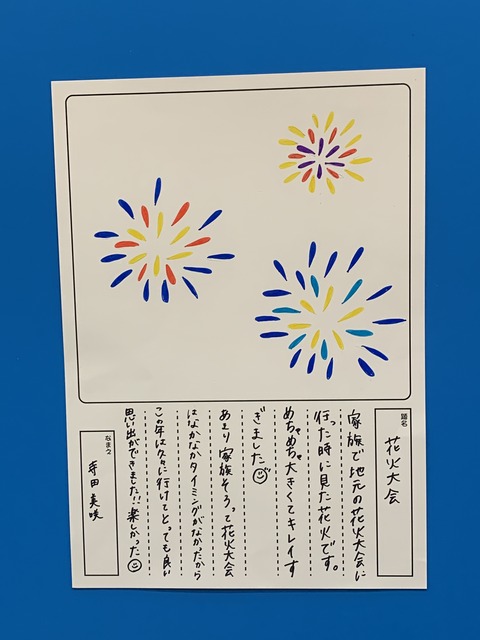 題名
花火大会
家族で地元の花火大会に
行った時に見た花火です。
めちゃめちゃ大きくてキレイす
ぎました☺
あまり家族そろって花火大会
はなかなかタイミングがなかったから
この年は久々に行けてとっても良い
思い出ができました!!楽しかった☺
なまえ
寺田美咲